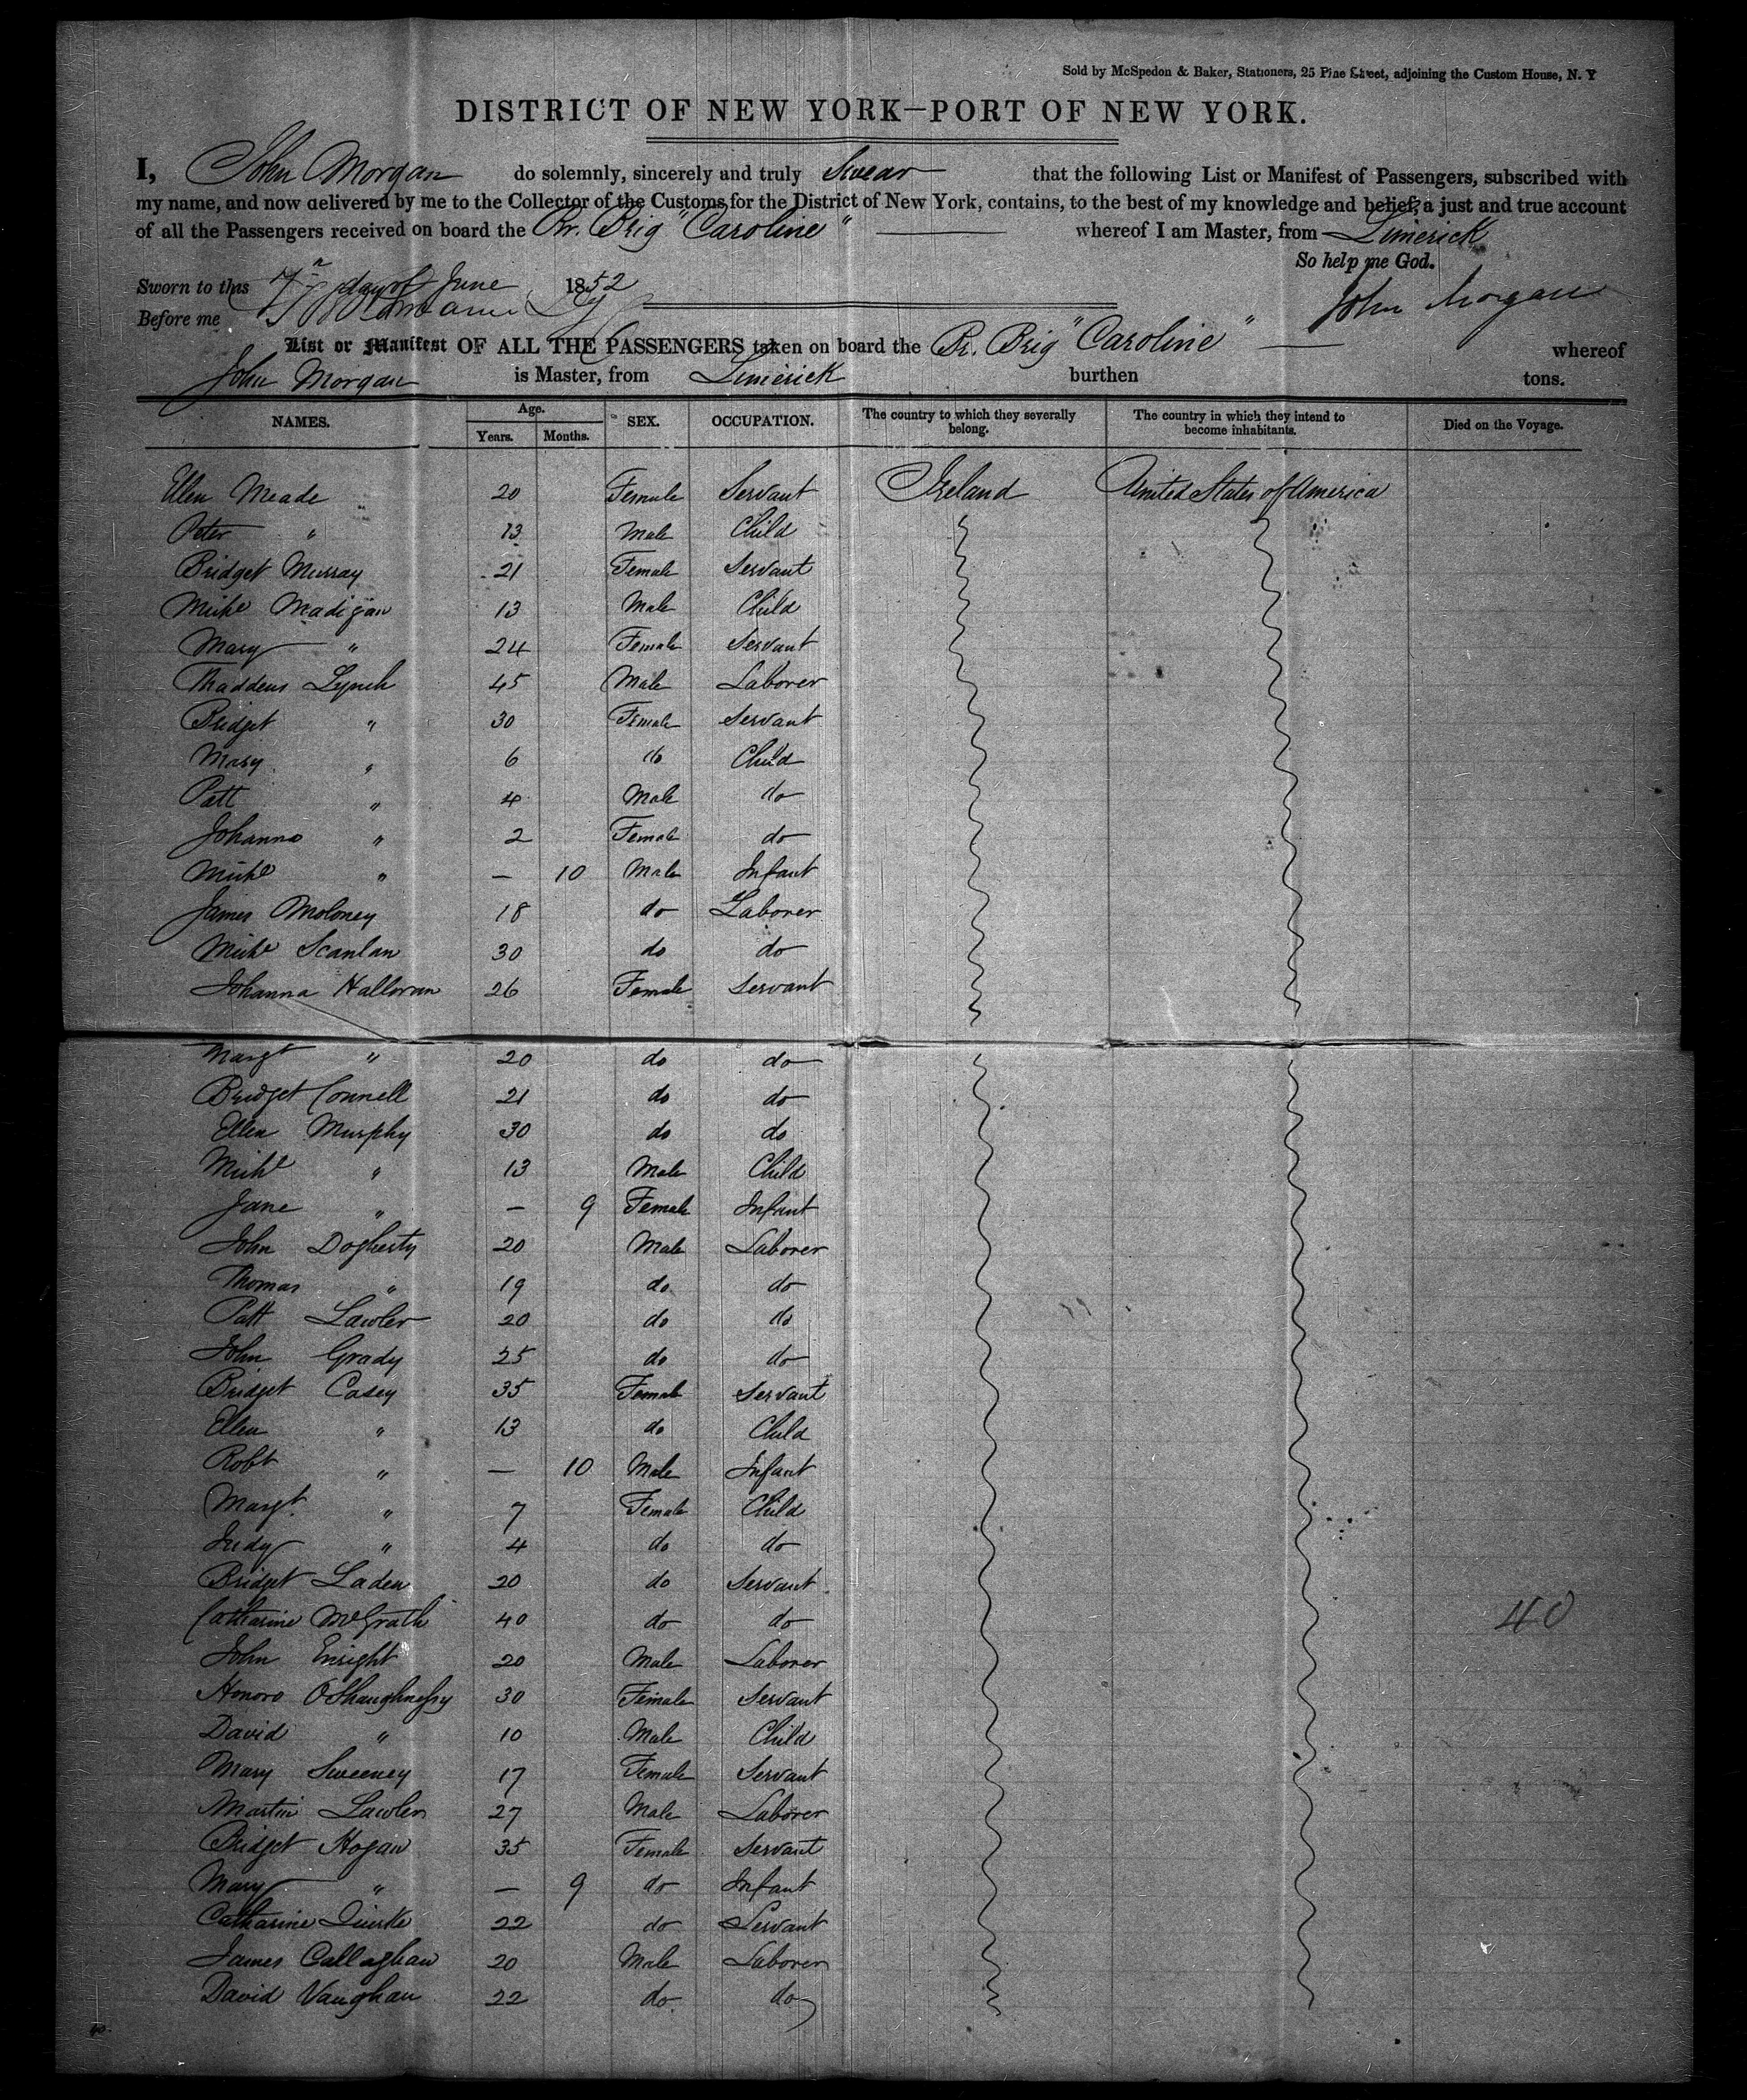 Sold by McSpedon & Baker, Stationers, 25 Pine Street, adjoining the Custom House, N. Y
DISTRICT OF NEW YORK—PORT OF NEW YORK.
I, John Morgan do solemnly, sincerely and truly Swear that the following List or Manifest of Passengers, subscribed with
my name, and now delivered by me to the Collector of the Customs for the District of New York, contains, to the best of my knowledge and belief, a just and true account
of all the Passengers received on board the Br. Brig "Caroline" whereof I am Master, from Limerick
So help me God.
Sworn to this 7th day of June 1852
John Morgan
Before me
List or Manifest OF ALL THE PASSENGERS taken on board the Br. Brig "Caroline" whereof
John Morgan is Master, from Limerick burthen tons.
NAMES. Age. Years. Months. SEX. OCCUPATION. The country to which they severally belong. The country in which they intend to become inhabitants. Died on the Voyage.
Ellen Meade 20 Female Servant Ireland United States of America
Peter " 13 Male Child
Bridget Murray 21 Female Servant
Michl Madigan 13 Male Child
Mary " 24 Female Servant
Thaddeus Lynch 45 Male Laborer
Bridget " 30 Female Servant
Mary " 6 do Child
Patt " 4 Male do
Johanna " 2 Female do
Michl " — 10 Male Infant
James Moloney 18 do Laborer
Michl Scanlan 30 do do
Johanna Halloran 26 Female Servant
Margt " 20 do do
Bridget Connell 21 do do
Ellen Murphy 30 do do
Michl " 13 Male Child
Jane " — 9 Female Infant
John Dogherty 20 Male Laborer
Thomas " 19 do do
Patt Lawler 20 do do
John Grady 25 do do
Bridget Casey 35 Female Servant
Ellen " 13 do Child
Robt " — 10 Male Infant
Margt. " 7 Female Child
Judy " 4 do do
Bridget Laden 20 do Servant
Catharine McGrath 40 do do 40
John Enright 20 Male Laborer
Honoro OShaughnessy 30 Female Servant
David " 10 Male Child
Mary Sweeney 17 Female Servant
Martin Lawler 27 Male Laborer
Bridget Hogan 35 Female Servant
Mary " — 9 do Infant
Catharine Quirke 22 do Servant
James Callaghan 20 Male Laborer
David Vaughan 22 do do